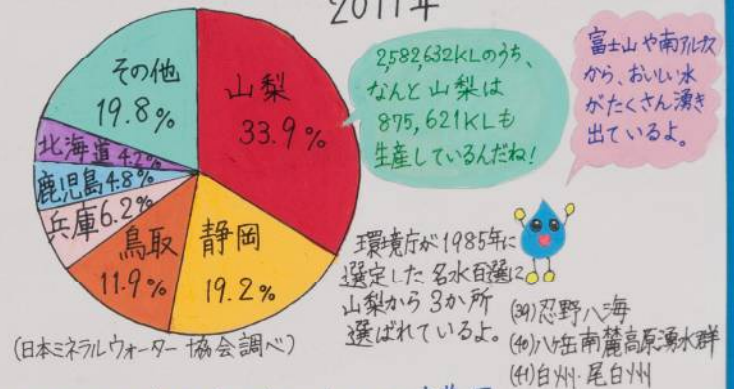 2011年
その他
19.8%
山梨
33.9%
北海道4.2%
鹿児島4.8%
兵庫6.2%
鳥取
11.9%
静岡
19.2%
(日本ミネラルウォーター協会調べ)
2,582,632KLのうち、
なんと山梨は
875,621KLも
生産しているんだね!
富士山や南アルプス
から、おいしい水
がたくさん湧き
出ているよ。
環境庁が1985年に
選定した名水百選に
山梨から3か所
選ばれているよ。
(39)忍野八海
(40)八ヶ岳南麓高原湧水群
(41)白州·尾白州